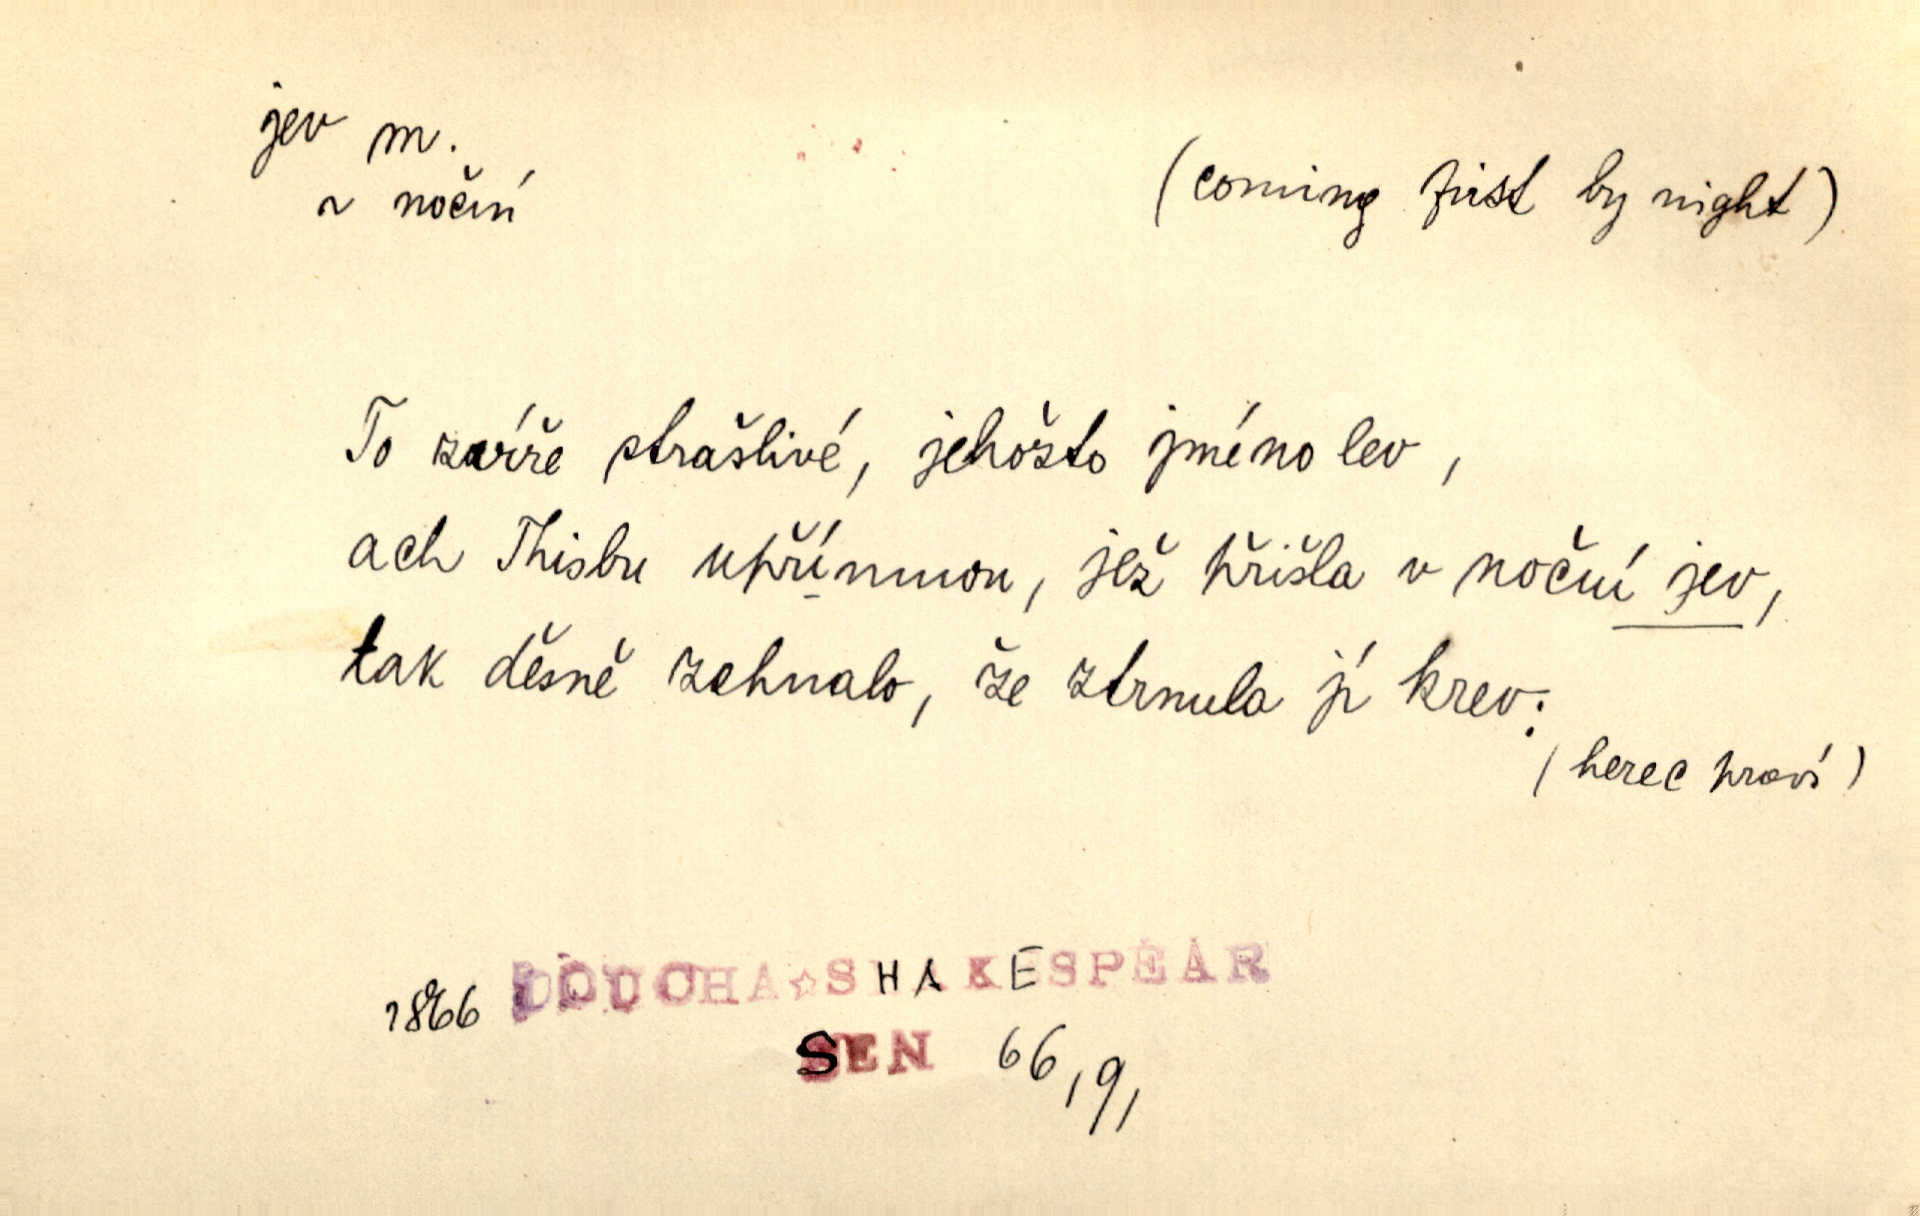 jev m.
~ noční
(coming first by night)
To zvíře strašlivé, jehožto jméno lev,
ach Thisbu upřímnou, jež přišla v noční jev,
tak děsně zehnalo, že ztrnula jí krev:
(herec praví)
1866 DOUCHA☆SHAKESPEAR
SEN 66,9,